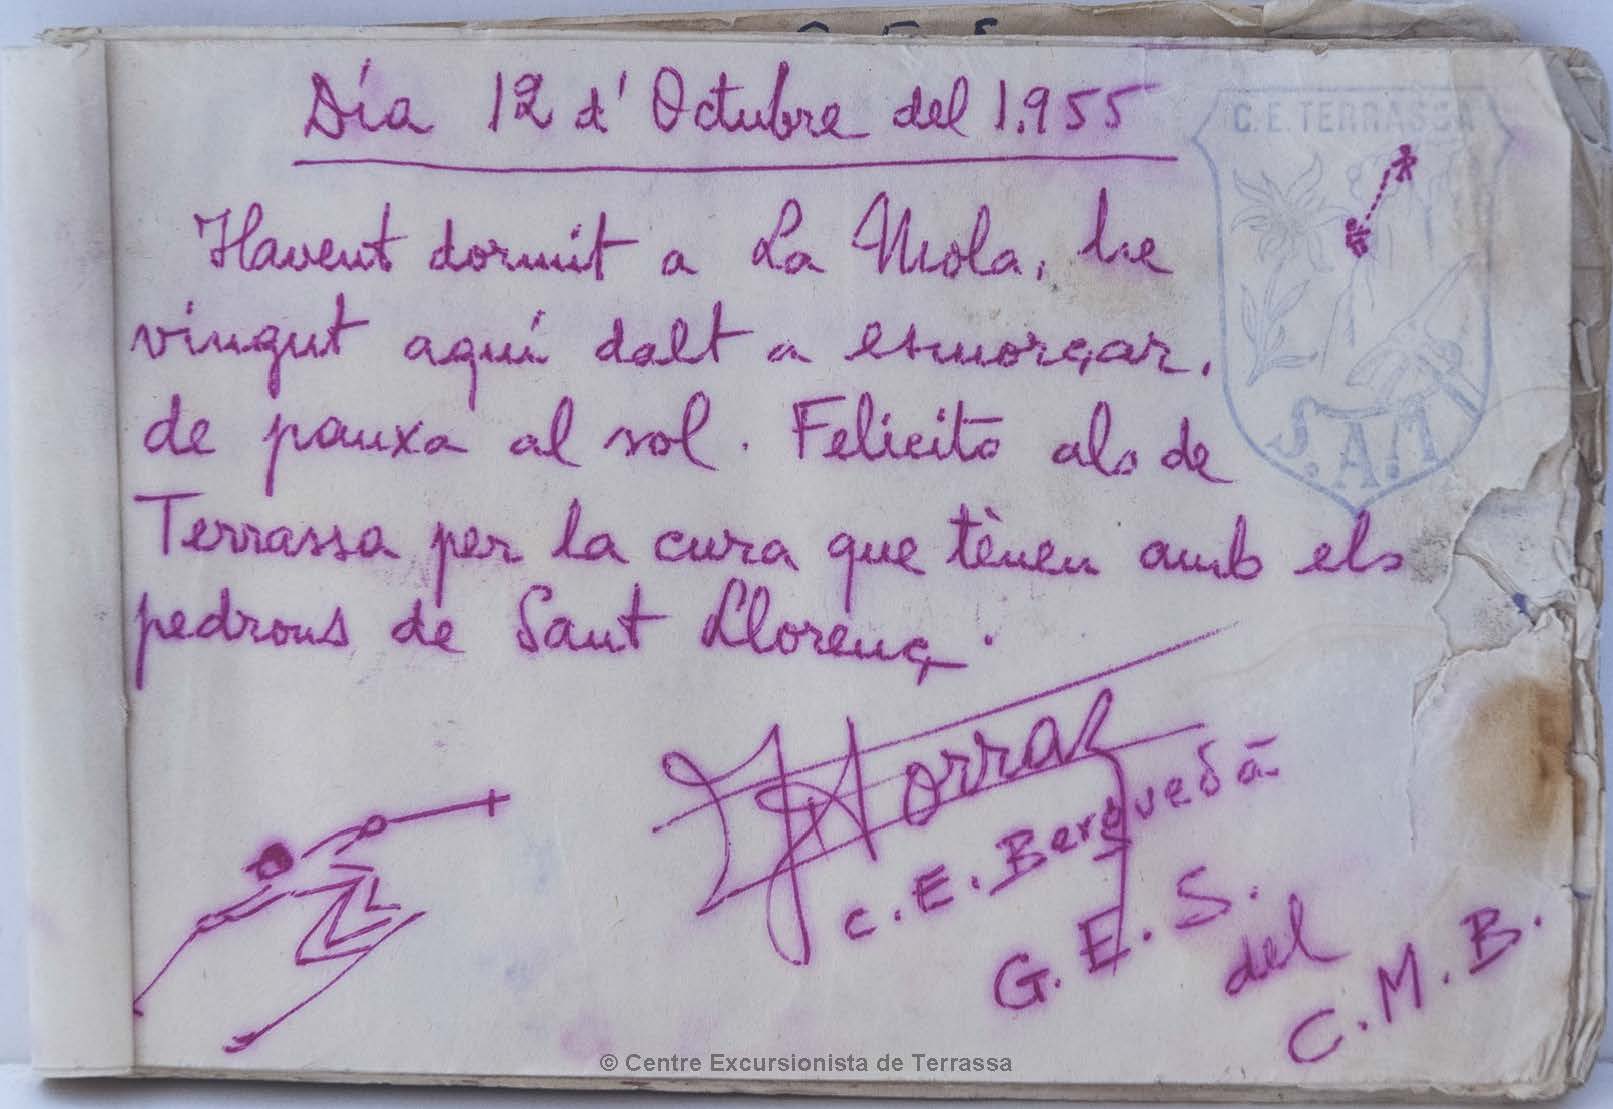 Día 12 d' Octubre del 1.955
C. E. TERRASSA
Havent dormit a La Mola, he
vingut aquí dalt a esmorçar,
de pauxa al sol. Felicito als de
Terrassa per la cura que tènen amb els
pedrous de Sant Llorenç.
S.A.M
C. E. Berguedà
G. E. S.
del
C. M. B.
© Centre Excursionista de Terrassa